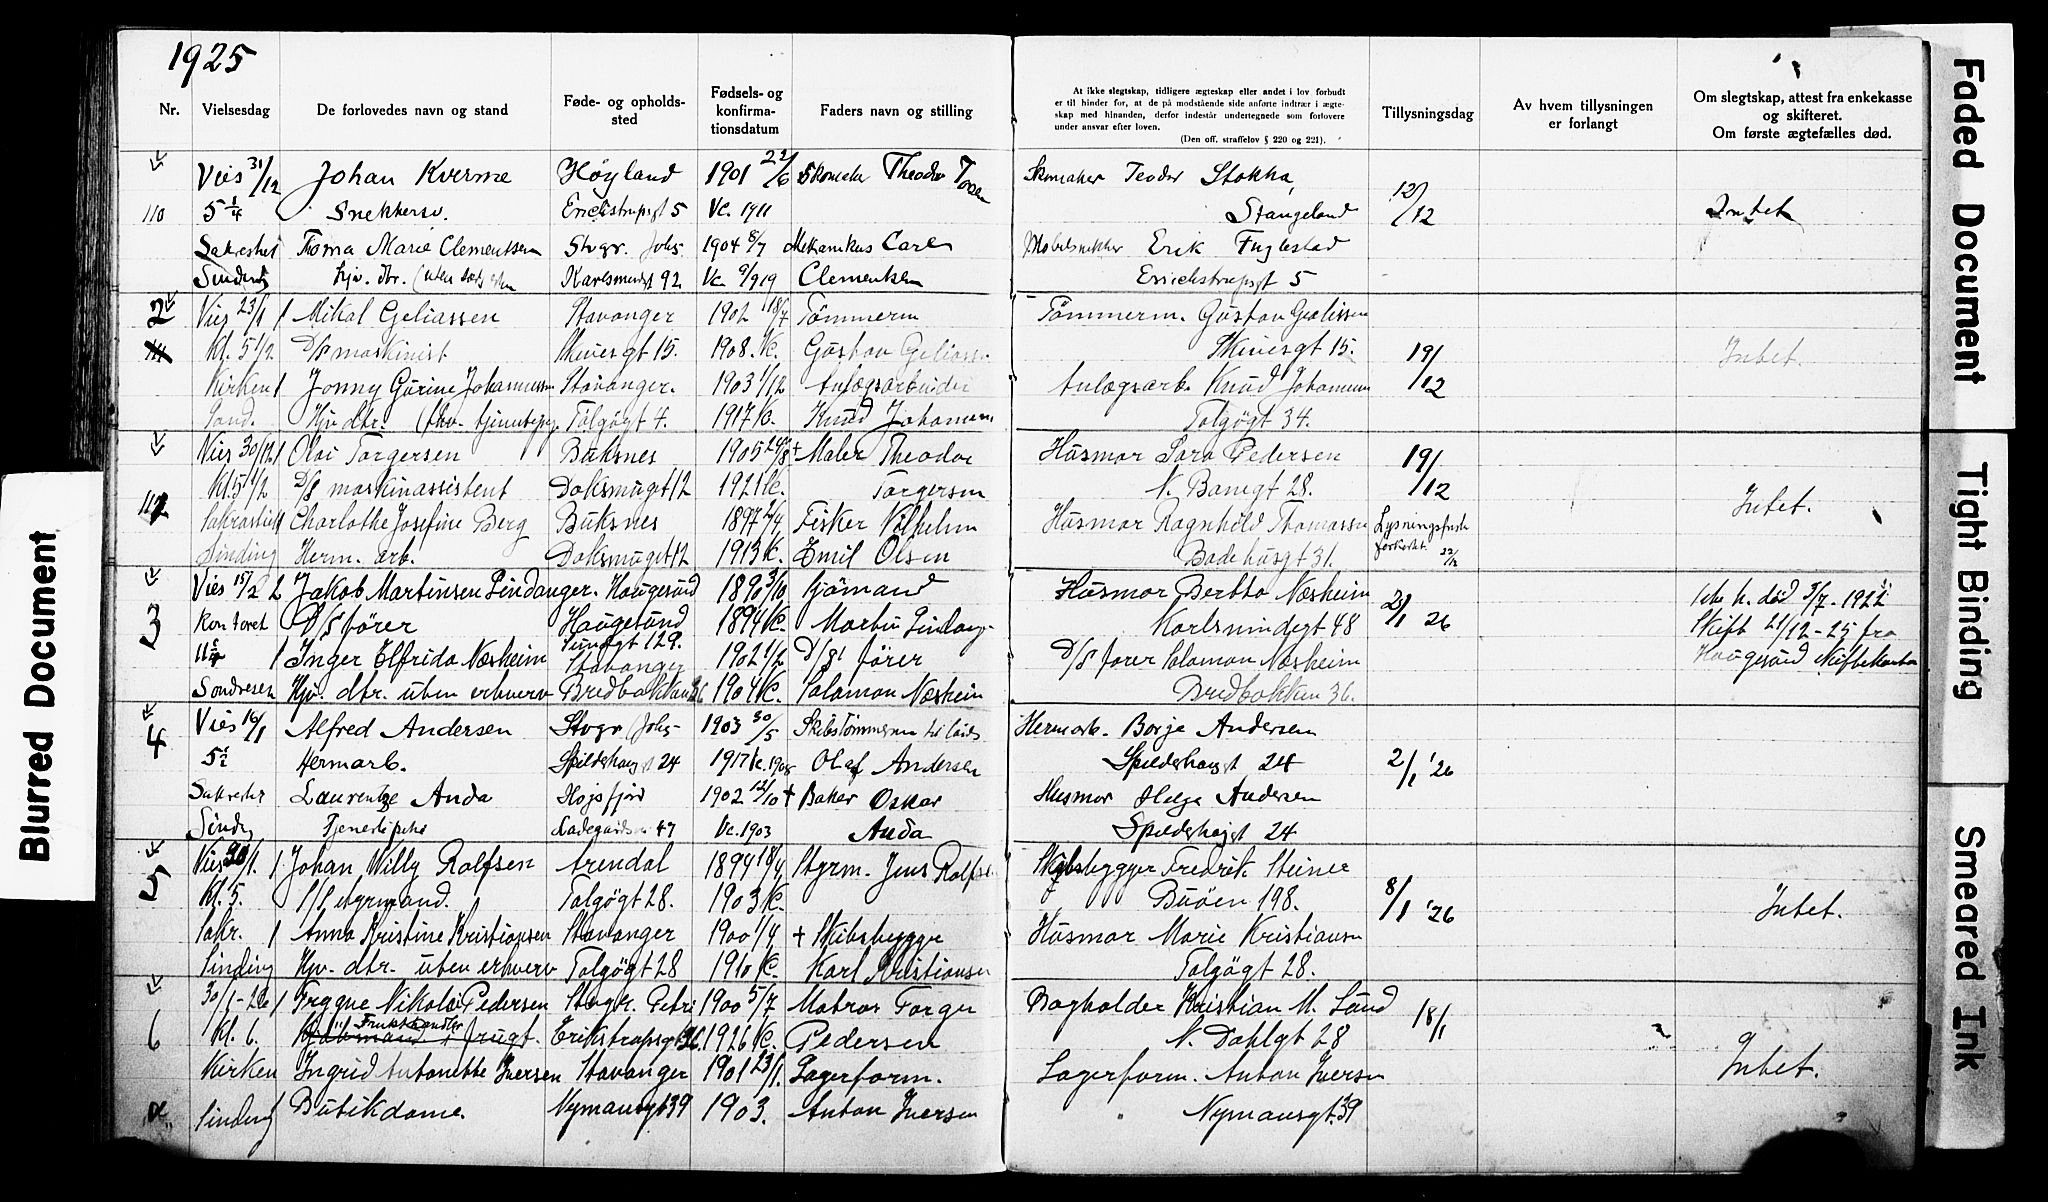 1925
Nr. Vielsesdag De forlovedes navn og stand Føde- og opholds-sted Fødsels- og konfirma-tionsdatum Faders navn og stilling
At ikke slegtskap, tidligere ægteskap eller andet i lov forbudt er til hinder for, at de på modstående side anførte indtrær i ægte-skap med hinanden, derfor indestår undertegnede som forlovere under ansvar efter loven. (Den off. straffelov § 220 og 221). Tillysningsdag Av hvem tillysningen er forlangt Om slegtskap, attest fra enkekasse og skifteret. Om første ægtefælles død.
Vies 31/12 Johan Kverme Høyland 1901 22/6 Theodor Skomaker Teodor Stokka, 12/12
110 5 1/4 Snekkersv. Erichstrupsgt 5 Vc. 1911 Stangeland Intet
Thoma Marie Clementsen Stvgr. Johs 1904 8/7 Mekanikus Carl Møbelsnekker Erik Fuglestad
Sinding hjv. dtr. Karlsmindegt 92 Vc. 9/919 Clementsen Erichstrupsgt 5
2 Vies 23/1 1 Mikal Geliassen Stavanger 1902 18/7 Tømmerm Tømmerm. Gustav Geliassen
111 Kl. 5 1/2 D/S maskinist 15. 1908. K. Gustav Geliass 15. 19/12 Intet.
Kirken 1 Jonny Gurine Johannessen Stavanger. 1903 1/12 Anlægsarbeider Anlægsarb. Knud Johannesen
Hjv dtr. Tolgøgt 4. 1917 K. Knud Johannesen Tolgøgt 34.
Vies 30/12 1 Olai Torgersen Buksnes 1905 + Maler Theodor Husmor Sara Pedersen 19/12
Kl 5 1/2 D/S maskinassistent Doksmuget 12 1921 K. Torgersen N. Banegt 28.
112 Charlothe Josefine Berg Buksnes 1897 Fisker Vilhelm Husmor Ragnhild Thomassen Intet.
Sinding Herm. arb. Doksmuget 12 1913 K. Emil Olsen Badehusgt 31. 22/12
Vies 15/2 2 Jakob Martinsen Lindanger. Haugesund 1890 3/10 Husmor Bertha Næsheim 2/1 26 1ste h. død 3/7 - 1922
3 Kontoret D/S fører Haugesund 1894 K. Martin Karlsmindegt 48 Skift 21/12 - 25 fra
1 Inger Elfrida Næsheim Stavanger 1902 1/2 D/S fører D/S fører Salomon Næsheim Haugesund
Hjv. dtr. uten erhverv Bredbakken 36 1904 K. Salomon Næsheim Bredbakken 36.
4 Vies 16/1 Alfred Andersen Stvgr Johs 1903 30/5 Skibstømmerm Hermarb. Borje Andersen
5 1/2 Hermarb. Spilderhaugt 24 1917 Olaf Andersen Spilderhaugt 24 2/1 '26
Laurentze Anda Høgsfjord 1902 12/10 + Baker Oskar Husmor Helga Andersen
Tjenestepike Ladegaardsv. 47 Vc. 1903 Anda Spilderhaugt 24
5 Vies 30/1. 1 Johan Willy Rolfsen Arendal 1894 18/4 Styrm. Jens Rolfsen Skibsbygger Fredrik Steiner
Kl. 5. S/S styrmand. Tolgøgt 28. 1903 K. Buøen 198. 8/1 '26 Intet.
Sakr. 1 Anna Kristine Kristiansen Stavanger 1900 1/4 + Skibsbygger Husmor Marie Kristiansen
Sinding Hjv. dtr. uten erhverv Tolgøgt 28 1916 K. Karl Kristiansen Tolgøgt 28.
30/1-26 1 Trygve Nikolai Pedersen Stvgr. Petri 1900 5/7 Matros Torger Bogholder Kristian M. Lund 18/1
6 Kl. 6. Frukthandler Erikstrupsgt 36. 1926 K. Pedersen N. Dahlgt 28
Kirken Ingrid Antonette Iversen Stavanger 1901 23/1. Lagerform. Lagerform. Anton Iversen Intet.
Sinding Butikdame. Nymansgt 39 1903. Anton Iversen Nymansgt. 39
Blurred Document
Faded Document
Tight Binding
Smeared Ink